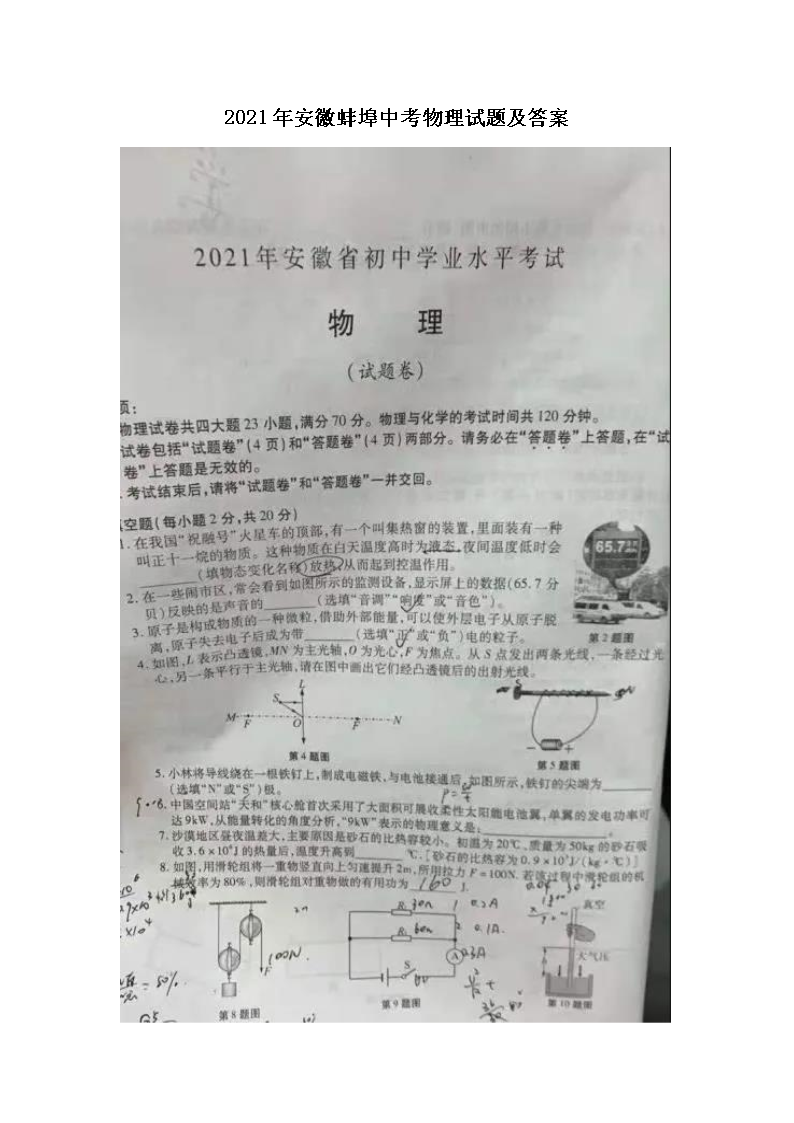 2021年安徽蚌埠中考物理试题及答案
2021年安徽省初中学业水平考试
物 理
(试题卷)
项:
物理试卷共四大题23小题,满分70分。物理与化学的考试时间共120分钟。
试卷包括“试题卷”(4页)和“答题卷”(4页)两部分。请务必在“答题卷”上答题,在“试
卷”上答题是无效的。
.考试结束后,请将“试题卷”和“答题卷”一并交回。
空题(每小题2分,共20分)
1.在我国“祝融号”火星车的顶部,有一个叫集热窗的装置,里面装有一种
叫正十一烷的物质。这种物质在白天温度高时为液态,夜间温度低时会
______(填物态变化名称)放热,从而起到控温作用。
65.7
2.在一些闹市区,常会看到如图所示的监测设备,显示屏上的数据(65.7分
贝)反映的是声音的______(选填“音调”“响度”或“音色”)。
3.原子是构成物质的一种微粒,借助外部能量,可以使外层电子从原子脱
离,原子失去电子后成为带______(选填“正”或“负”)电的粒子。
第2题图
4.如图,L表示凸透镜,MN为主光轴,O为光心,F为焦点。从S点发出两条光线,一条经过光
心,另一条平行于主光轴,请在图中画出它们经凸透镜后的出射光线。
L
S
M F O F N
S N
- +
第4题图
第5题图
5.小林将导线绕在一根铁钉上,制成电磁铁,与电池接通后,如图所示,铁钉的尖端为______
(选填“N”或“S”)极。
6.中国空间站“天和”核心舱首次采用了大面积可展收柔性太阳能电池翼,单翼的发电功率可
达9kW,从能量转化的角度分析,“9kW”表示的物理意义是:______。
7.沙漠地区昼夜温差大,主要原因是砂石的比热容较小。初温为20℃、质量为50kg的砂石吸
收3.6×10⁵J的热量后,温度升高到______℃。[砂石的比热容为0.9×10³J/(kg·℃)]
8.如图,用滑轮组将一重物竖直向上匀速提升2m,所用拉力F=100N。若该过程中滑轮组的机
械效率为80%,则滑轮组对重物做的有用功为 160 J.
R₁ 30Ω 0.2A
R₂ 60Ω 0.1A
A 0.3A
S
2m
100N
F
= 80%
真空
大气压
h
第8题图
第9题图
第10题图